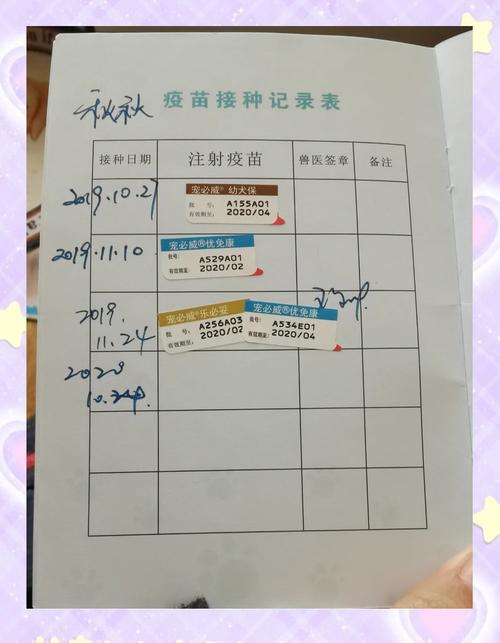 秋秋 疫苗接种记录表
接种日期 注射疫苗 兽医签章 备注
2019.10.27
宠必威® 幼犬保
批 号: A155A01
有效期至: 2020/04
2019.11.10
宠必威®优免康
批号: A529A01
有效期至: 2020/02
2019.
11.24
宠必威®乐必妥
批 号: A256A03
有效期至: 2020/02
宠必威®优免康
批号: A534E01
有效期至: 2020/04
2020
10.24